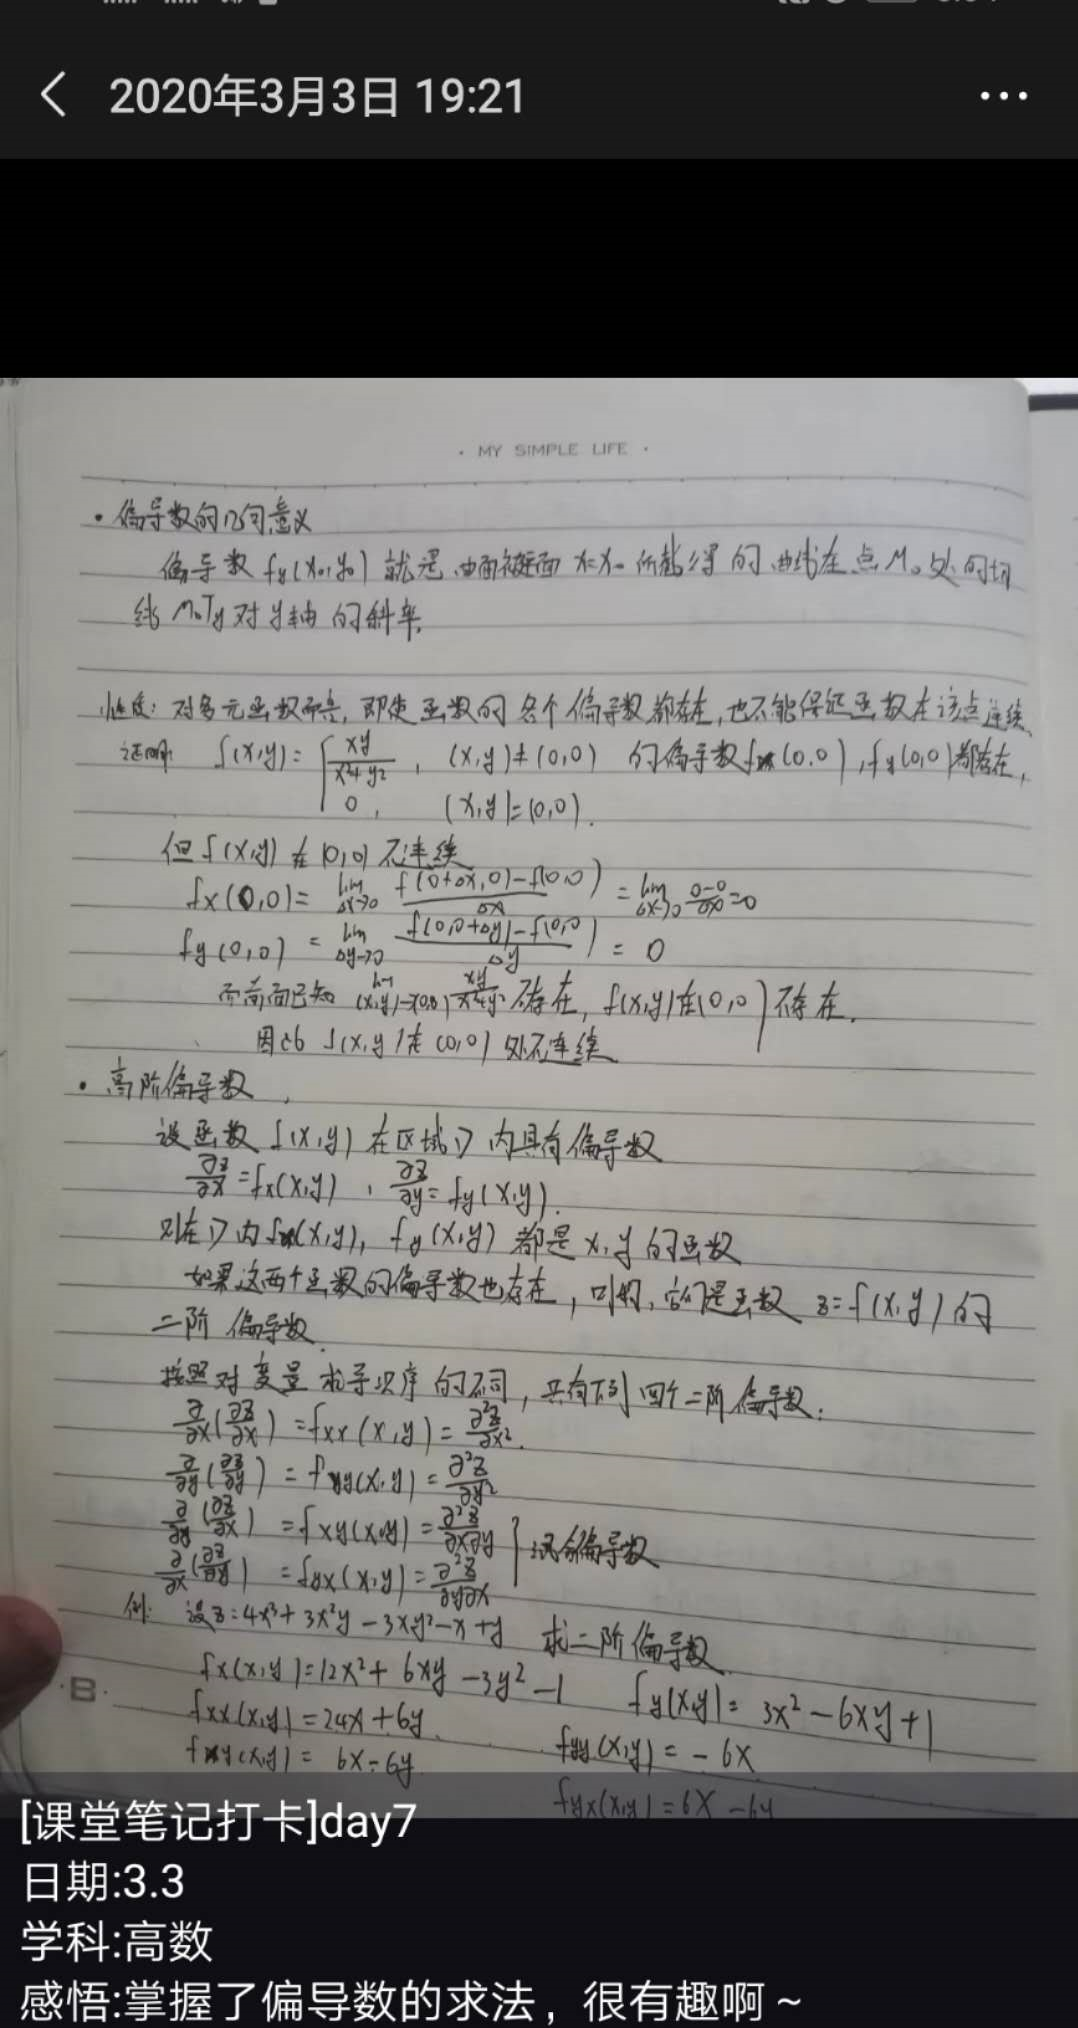 2020年3月3日 19:21
· MY SIMPLE LIFE ·
· 偏导数的几何意义
偏导数 fy(x₀,y₀) 就是曲面被平面 x=x₀ 所截得的曲线在点M₀处的切
线 M₀Ty 对 y轴的斜率.
注意: 对多元函数而言, 即使函数的各个偏导数都存在, 也不能保证函数在该点连续.
证明 f(x,y)= { xy/(x²+y²), (x,y)≠(0,0) 的偏导数fx(0,0), fy(0,0)都存在,
0, (x,y)=(0,0).
但 f(x,y) 在 (0,0) 不连续
fx(0,0)= lim Δx→0 (f(0+Δx,0)-f(0,0))/Δx = lim Δx→0 (0-0)/Δx =0
fy(0,0) = lim Δy→0 (f(0,0+Δy)-f(0,0))/Δy = 0
而前面已知 lim (x,y)→(0,0) xy/(x²+y²) 不存在, f(x,y)在(0,0)不存在.
因此 f(x,y)在(0,0)处不连续
· 高阶偏导数
设函数 f(x,y) 在区域D内具有偏导数
∂z/∂x = fx(x,y), ∂z/∂y = fy(x,y).
则在D内fx(x,y), fy(x,y) 都是 x,y 的函数
如果这两个函数的偏导数也存在, 它们是函数 z=f(x,y)的
二阶偏导数.
按照对变量求导次序的不同, 共有下列四个二阶偏导数:
∂/∂x(∂z/∂x) = fxx(x,y) = ∂²z/∂x².
∂/∂y(∂z/∂y) = fyy(x,y) = ∂²z/∂y²
∂/∂y(∂z/∂x) = fxy(x,y) = ∂²z/∂x∂y
∂/∂x(∂z/∂y) = fyx(x,y) = ∂²z/∂y∂x } 混合偏导数
例: 设z=4x³+3x²y-3xy²-x+y 求二阶偏导数
fx(x,y)=12x²+6xy-3y²-1 fy(x,y)= 3x²-6xy+1
fxx(x,y)=24x+6y. fyy(x,y)=-6x
fxy(x,y)= 6x-6y fyx(x,y)=6x-6y
B
[课堂笔记打卡]day7
日期:3.3
学科:高数
感悟:掌握了偏导数的求法，很有趣啊～